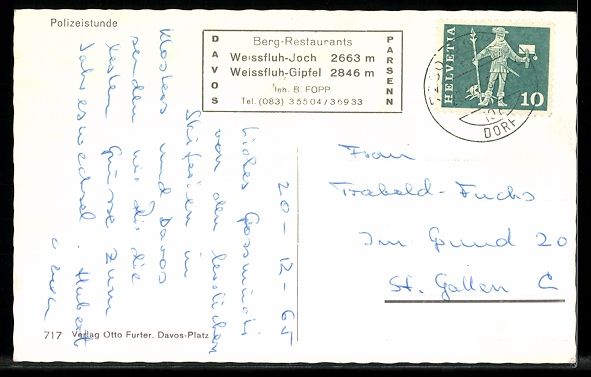 Polizeistunde
DAVOS
Berg-Restaurants
Weissfluh-Joch 2663 m
Weissfluh-Gipfel 2846 m
Inh. B. FOPP
Tel. (083) 3 55 04 / 3 69 33
PARSENN
HELVETIA
10
DORF
20-12-65
Liebes
von den herrlichen
Skiferien in
Klosters und Davos
senden wir die
besten Grüsse zum
Jahreswechsel. Hubert
Frau
Trabold-Fuchs
Im Grund 20
St. Gallen C
717 Verlag Otto Furter, Davos-Platz